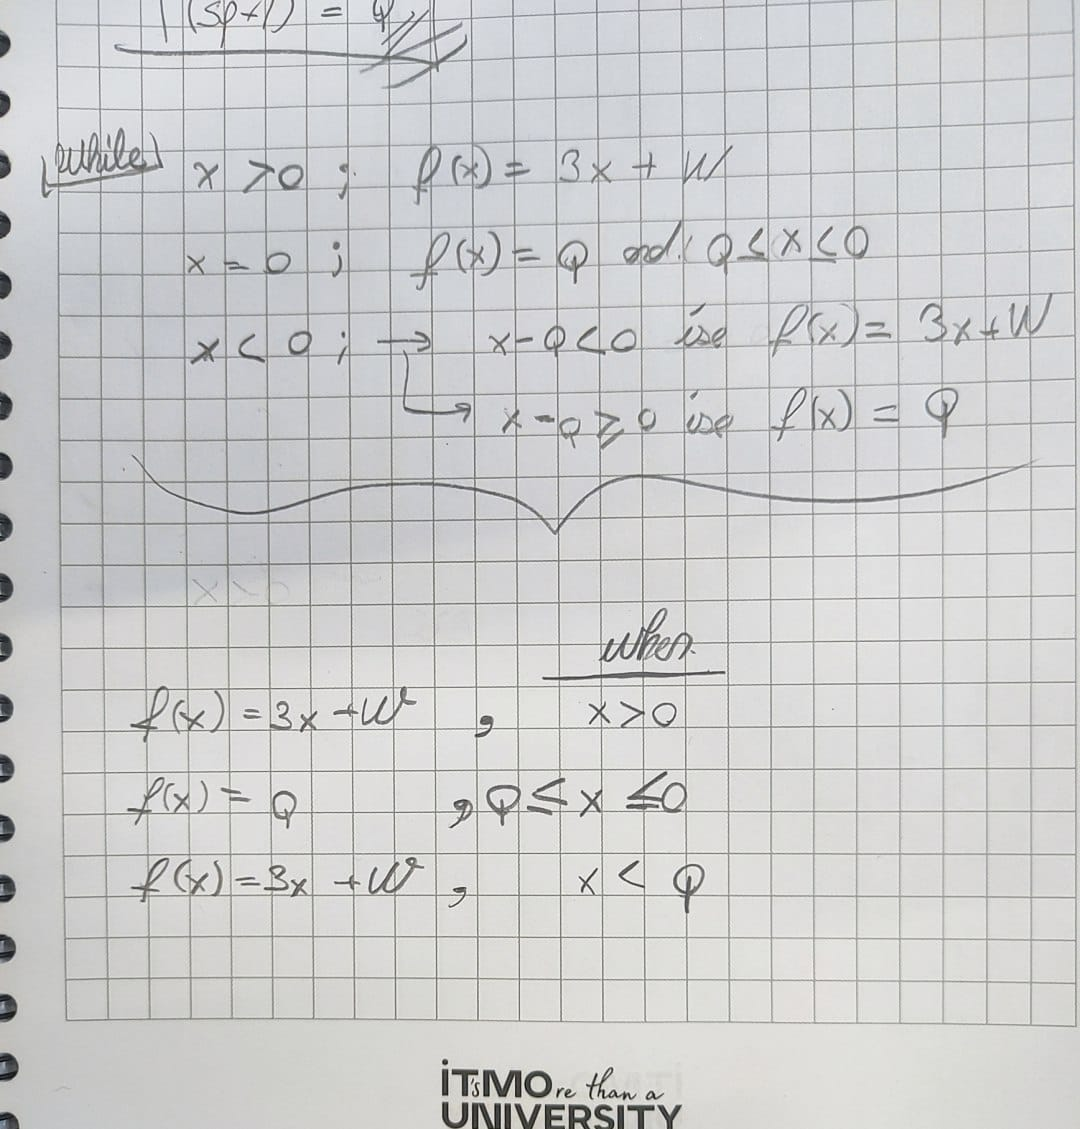 (Sp+1) = Q
while
x > 0 ; f(x) = 3x + W
x = 0 ; f(x) = Q and: Q ≤ x ≤ 0
x < 0 ; → x - Q < 0 ise f(x) = 3x + W
↳ x - Q ≥ 0 ise f(x) = Q
when
f(x) = 3x + W , x > 0
f(x) = Q , Q ≤ x ≤ 0
f(x) = 3x + W , x < Q
iT'sMOre than a
UNIVERSITY